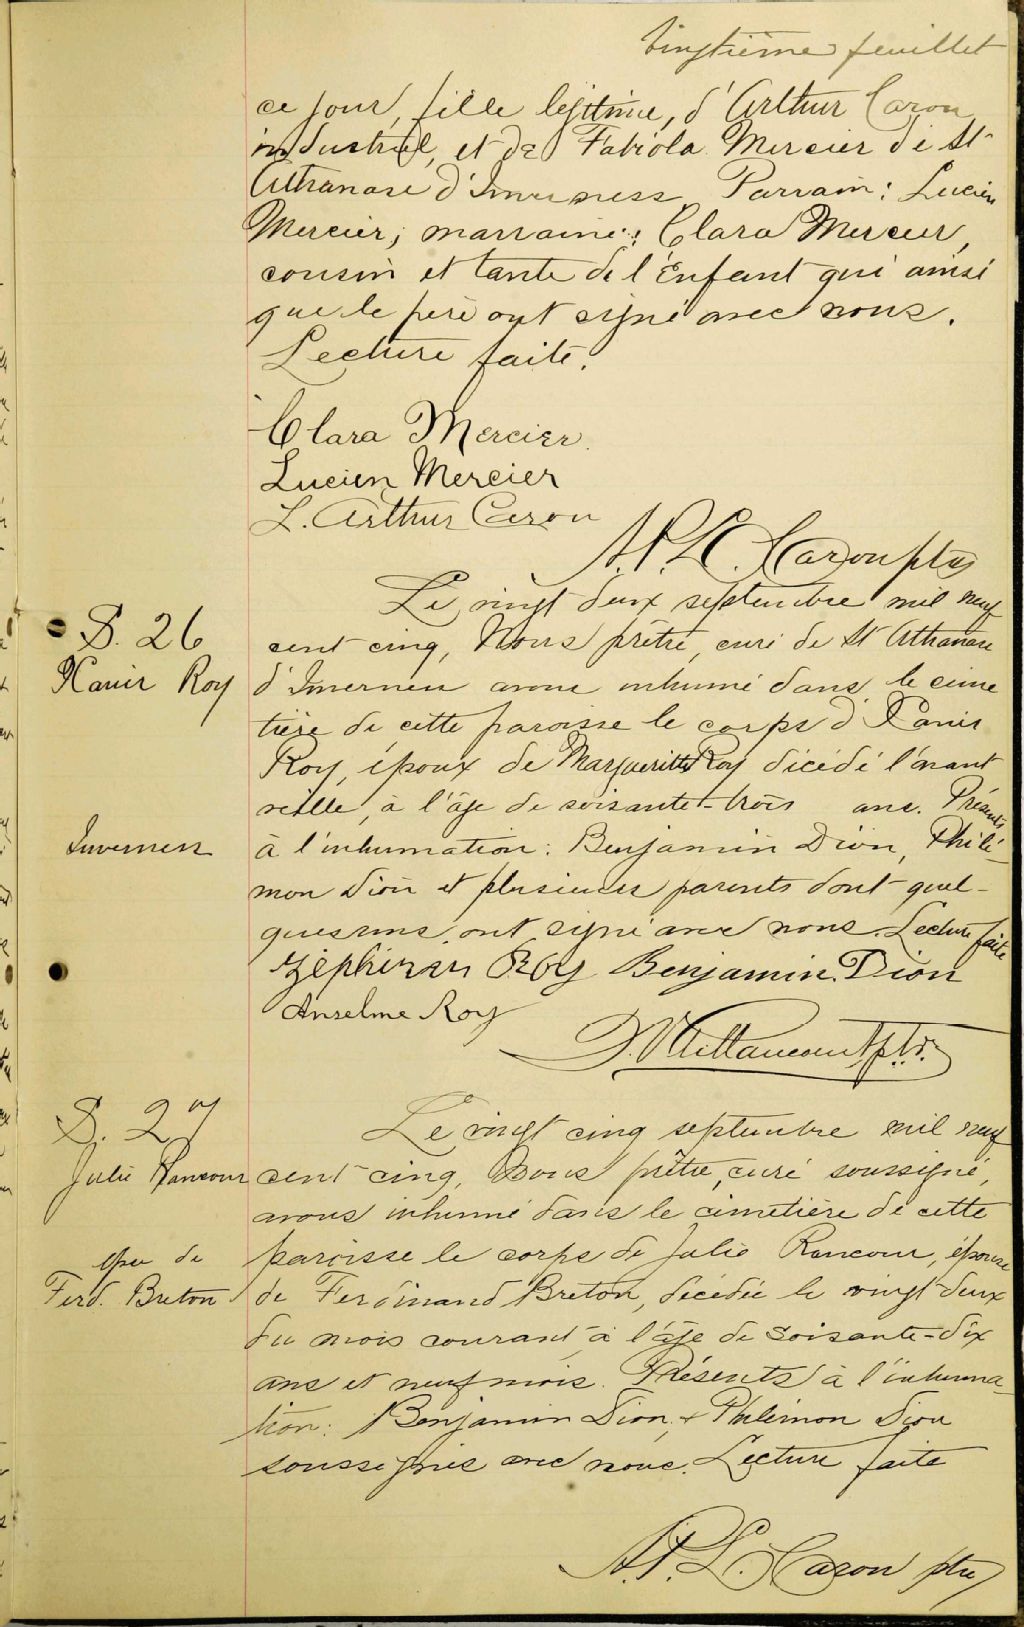 vingtième feuillet
ce jour, fille légitime, d'Arthur Caron
industriel, et de Fabiola Mercier de St
Athanase d'Inverness Parrain: Lucien
Mercier; marraine: Clara Mercier,
cousin et tante de l'Enfant qui ainsi
que le père ont signé avec nous.
Lecture faite.
Clara Mercier
Lucien Mercier
L. Arthur Caron
A.P.L. Caron ptre
Le vingt deux septembre mil neuf
S. 26
cent cinq, Nous prêtre, curé de St Athanase
Xavier Roy
d'Inverness avons inhumé dans le cime
tière de cette paroisse le corps d'Xavier
Roy, époux de Marguerite Roy décédé l'avant
veille, à l'âge de soixante-trois ans. Présents
Inverness
à l'inhumation: Benjamin Dion, Philé-
mon Dion et plusieurs parents dont quel-
ques uns ont signé avec nous. Lecture faite
Zéphirin Roy Benjamin Dion
Anselme Roy
Vaillancourt ptr.
S. 27
Le vingt cinq septembre mil neuf
Julie Rancour
cent cinq, Nous prêtre, curé soussigné,
avons inhumé dans le cimetière de cette
épse de
paroisse le corps de Julie Rancour, épouse
Ferd. Breton
de Ferdinand Breton, décédée le vingt-deux
du mois courant à l'âge de soixante-dix
ans et neuf mois. Présents à l'inhuma-
tion: Benjamin Dion, & Philémon Dion
soussignés avec nous. Lecture faite
A.P.L. Caron ptre